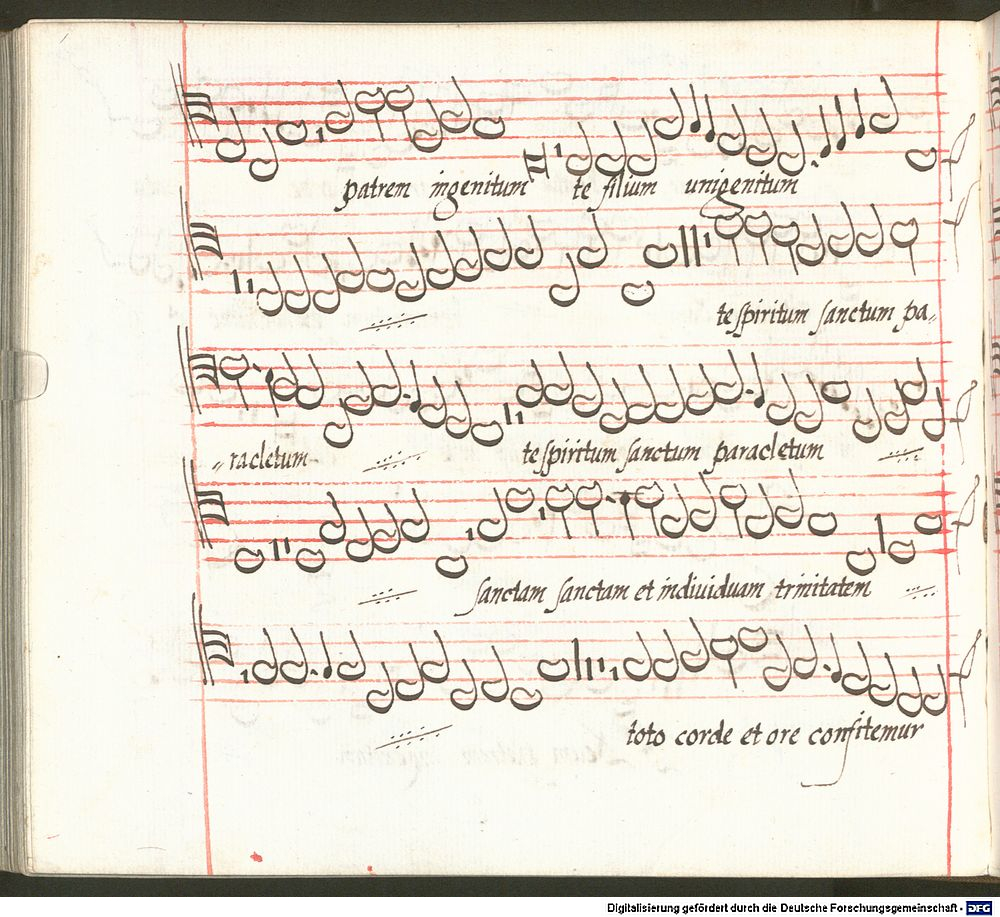 patrem ingenitum te filium unigenitum
te spiritum sanctum pa„
„racletum te spiritum sanctum paracletum
sanctam sanctam et indiuiduam trinitatem
toto corde et ore confitemur
Digitalisierung gefördert durch die Deutsche Forschungsgemeinschaft - DFG